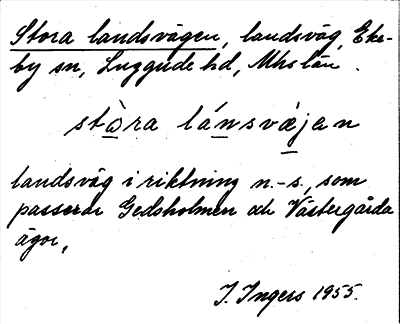 Stora landsvägen, landsväg, Eke-
by sn, Luggude hd, Mhs län.
stò̱ra lá̱nsvæ̱jen
landsväg i riktning n.-s., som
passerar Gedsholmen och Västergårda
ägor,
I. Ingers 1955.